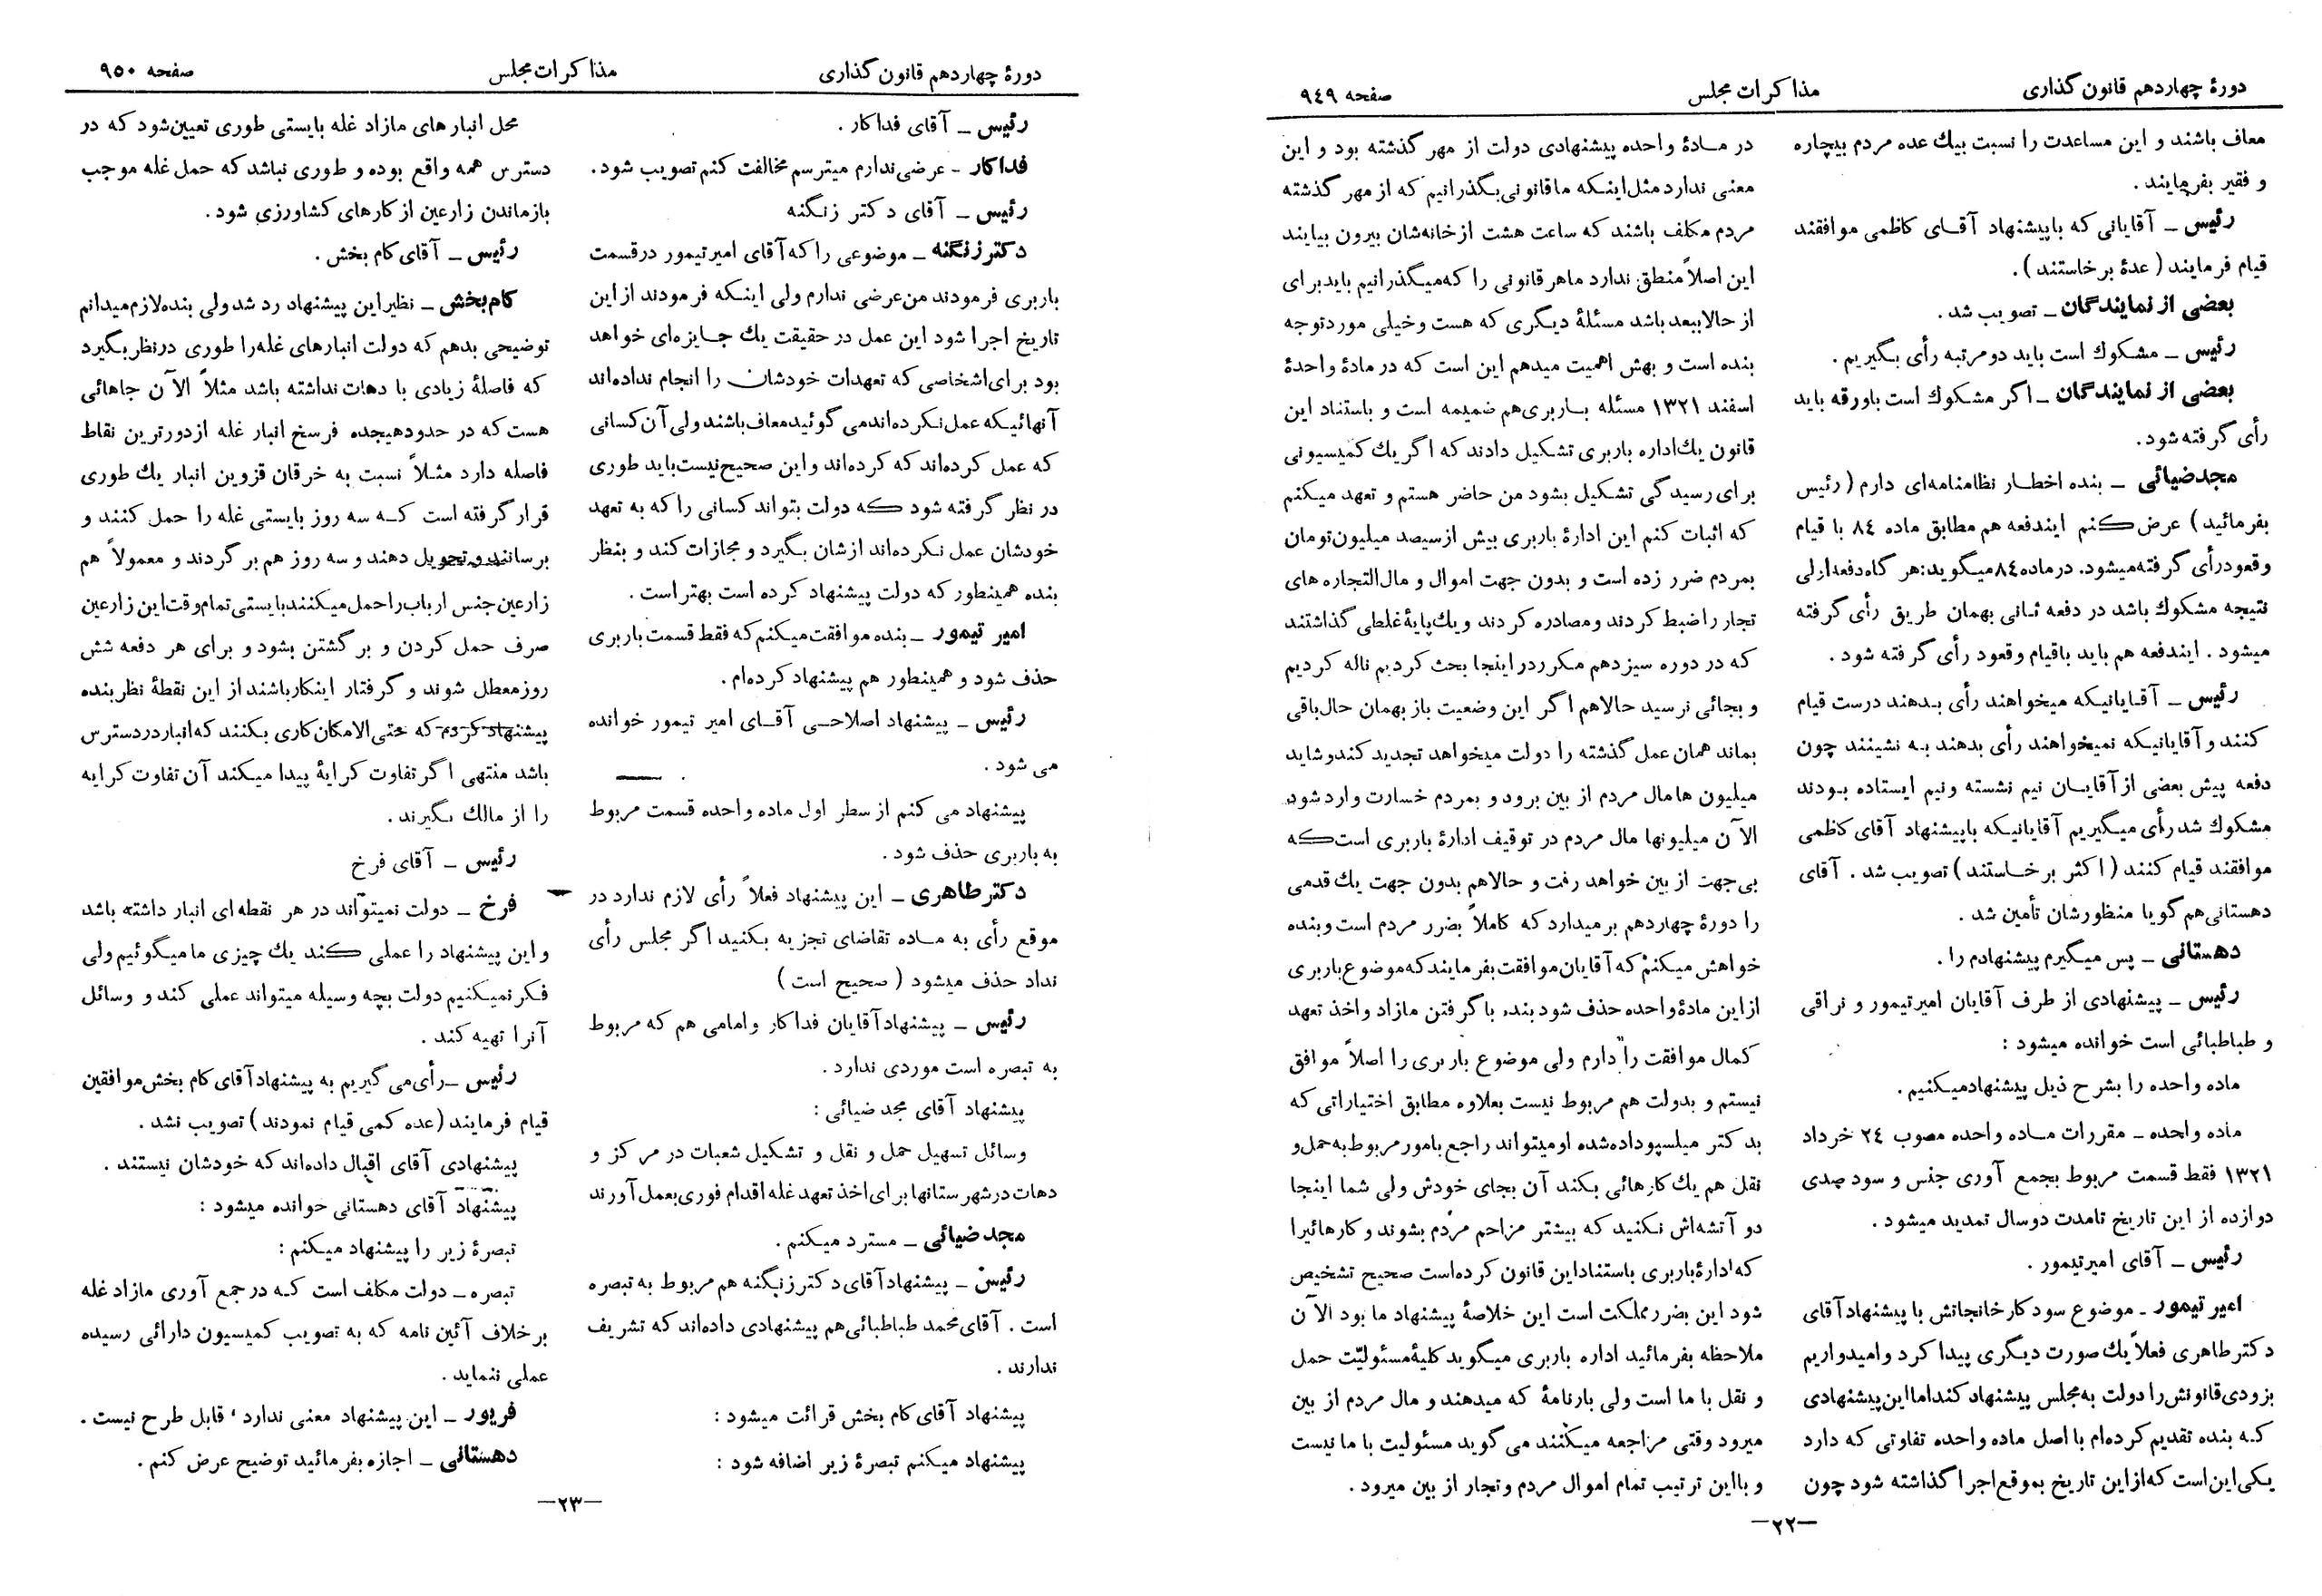 دورهٔ چهاردهم قانون گذاری
مذاکرات مجلس
صفحه ۹٤۹
معاف باشند و این مساعدت را نسبت بیك عده مردم بیچاره
و فقیر بفرمایند .
رئیس ـ آقایانی که باپیشنهاد آقـای کاظمی موافقند
قیام فرمایند ( عدهٔ برخاستند ) .
بعضی از نمایندگان ـ تصویب شد .
رئیس ـ مشکوك است باید دومرتبه رأی بگیریم .
بعضی از نمایندگان ـ اگر مشکوك است باورقه باید
رأی گرفته شود.
مجدضیائی ـ بنده اخطـار نظامنامه‌ای دارم ( رئیس
بفرمائید ) عرض کنم ایندفعه هم مطابق ماده ۸٤ با قیام
وقعودرأی گرفته میشود. درماده۸٤میگوید:هر گاه‌دفعه‌اولی
نتیجه مشکوك باشد در دفعه ثانی بهمان طریق رأی گرفته
میشود . ایندفعه هم باید باقیام وقعود رأی گرفته شود .
رئیس ـ آقـایانیکه میخواهند رأی بـدهند درست قیام
کنند و آقایانیکه نمیخواهند رأی بدهند بـه نشینند چون
دفعه پیش بعضی از آقایـان نیم نشسته ونیم ایستاده بـودند
مشکوك شد رأی میگیریم آقایانیکه باپیشنهاد آقای کاظمی
موافقند قیام کنند ( اکثر برخـاستند ) تصویب شد . آقای
دهستانی‌هم گویا منظورشان تأمین شد .
دهستانی ـ پس میگیرم پیشنهادم را .
رئیس ـ پیشنهادی از طرف آقایان امیرتیمور و نراقی
و طباطبائی است خوانده میشود :
ماده واحده را بشرح ذیل پیشنهادمیکنیم .
ماده واحده ـ مقررات مـاده واحده مصوب ۲٤ خرداد
۱۳۲۱ فقط قسمت مربوط بجمع آوری جنس و سود صدی
دوازده از این تاریخ تامدت دوسال تمدید میشود .
رئیس ـ آقای امیرتیمور .
امیر تیمور ـ موضوع سود کارخانجاتش با پیشنهاد آقای
دکتر طاهری فعلاً یك صورت دیگری پیدا کرد و امیدواریم
بزودی قانونش را دولت به مجلس پیشنهاد کند اما این پیشنهادی
کـه بنده تقدیم کرده‌ام با اصل ماده واحده تفاوتی که دارد
یکی این است که از این تاریخ بموقع اجرا گذاشته شود چون
در مـادهٔ واحده پیشنهادی دولت از مهر گذشته بود و این
معنی ندارد مثل اینکه ما قانونی بگذرانیم که از مهر گذشته
مردم مکلف باشند که ساعت هشت از خانه‌شان بیرون بیایند
این اصلاً منطق ندارد ماهر قانونی را که میگذرانیم باید برای
از حالاببعد باشد مسئلهٔ دیگری که هست وخیلی موردتوجه
بنده است و بهش اهمیت میدهم این است که در مادهٔ واحدهٔ
اسفند ۱۳۲۱ مسئله بـاربری هم ضمیمه است و باستناد این
قانون یك اداره باربری تشکیل دادند که اگر یك کمیسیونی
برای رسیدگی تشکیل بشود من حاضر هستم و تعهد میکنم
که اثبات کنم این ادارهٔ باربری بیش از سیصد میلیون تومان
بمردم ضرر زده است و بدون جهت اموال و مال‌التجاره‌های
تجار را ضبط کردند ومصادره کردند و یك پایهٔ غلطی گذاشتند
که در دوره سیزدهم مکرر در اینجا بحث کردیم ناله کردیم
و بجائی نرسید حالاهم اگر این وضعیت باز بهمان حال باقی
بماند همان عمل گذشته را دولت میخواهد تجدید کندو شاید
میلیون ها مال مردم از بین برود و بمردم خسارت وارد شود
الآن میلیونها مال مردم در توقیف ادارهٔ باربری است که
بی‌جهت از بین خواهد رفت و حالاهم بدون جهت یك قدمی
را دورهٔ چهاردهم برمیدارد که کاملاً بضرر مردم است وبنده
خواهش میکنم که آقایان موافقت بفرمایند که موضوع باربری
از این مادهٔ واحده حذف شود بنده با گرفتن مازاد واخذ تعهد
کمال موافقت را دارم ولی موضوع باربری را اصلاً موافق
نیستم و بدولت هم مربوط نیست بعلاوه مطابق اختیاراتی که
بدکتر میلسپو داده شده او میتواند راجع بامور مربوط به حمل و
نقل هم یك کارهائی بکند آن بجای خودش ولی شما اینجا
دو آتشه‌اش نکنید که بیشتر مزاحم مردم بشوند و کارهائیرا
که ادارهٔ باربری باستناد این قانون کرده است صحیح تشخیص
شود این بضرر مملکت است این خلاصهٔ پیشنهاد ما بود الآن
ملاحظه بفرمائید اداره باربری میگوید کلیهٔ مسئولیّت حمل
و نقل با ما است ولی بارنامهٔ که میدهند و مال مردم از بین
میرود وقتی مراجعه میکنند می گوید مسئولیت با ما نیست
و بااین ترتیب تمام اموال مردم وتجار از بین میرود .
—۲۲—
دورهٔ چهاردهم قانون گذاری
مذاکرات مجلس
صفحه ۹۵۰
رئیس ـ آقای فداکار .
فداکار - عرضی ندارم میترسم مخالفت کنم تصویب شود.
رئیس ـ آقای دکتر زنگنه
دکترزنگنه ـ موضوعی را که آقای امیرتیمور در قسمت
باربری فرمودند من عرضی ندارم ولی اینکه فرمودند از این
تاریخ اجرا شود این عمل در حقیقت یك جـایزه‌ای خواهد
بود برای اشخاصی که تعهدات خودشان را انجام نداده‌اند
آنهائیکه عمل نکرده‌اند می گوئید معاف باشند ولی آن کسانی
که عمل کرده‌اند که کرده‌اند واین صحیح نیست باید طوری
در نظر گرفته شود که دولت بتواند کسانی را که به تعهد
خودشان عمل نکرده‌اند ازشان بگیرد و مجازات کند و بنظر
بنده همینطور که دولت پیشنهاد کرده است بهتر است .
امیر تیمور ـ بنده موافقت میکنم که فقط قسمت باربری
حذف شود و همینطور هم پیشنهاد کرده‌ام .
رئیس ـ پیشنهاد اصلاحـی آقـای امیر تیمور خوانده
می شود .
پیشنهاد می کنم از سطر اول ماده واحده قسمت مربوط
به باربری حذف شود .
دکتر طاهری ـ این پیشنهاد فعلاً رأی لازم ندارد در
موقع رأی به مـاده تقاضای تجزیه بکنید اگر مجلس رأی
نداد حذف میشود ( صحیح است )
رئیس ـ پیشنهاد آقایان فداکار و امامی هم که مربوط
به تبصره است موردی ندارد .
پیشنهاد آقای مجد ضیائی :
وسائل تسهیل حمل و نقل و تشکیل شعبات در مرکز و
دهات در شهرستانها برای اخذ تعهد غله اقدام فوری بعمل آورند
مجد ضیائی ـ مسترد میکنم .
رئیس ـ پیشنهاد آقای دکتر زنگنه هم مربوط به تبصره
است . آقای محمد طباطبائی هم پیشنهادی داده‌اند که تشریف
ندارند .
پیشنهاد آقای کام بخش قرائت میشود :
پیشنهاد میکنم تبصرهٔ زیر اضافه شود :
محل انبار های مازاد غله بایستی طوری تعیین شود که در
دسترس همه واقع بوده و طوری نباشد که حمل غله موجب
بازماندن زارعین از کارهای کشاورزی شود .
رئیس ـ آقای کام بخش .
کام‌بخش ـ نظیر این پیشنهاد رد شد ولی بنده لازم میدانم
توضیحی بدهم که دولت انبارهای غله را طوری در نظر بگیرد
که فاصلهٔ زیادی با دهات نداشته باشد مثلاً الآن جاهائی
هست که در حدود هیجده فرسخ انبار غله از دورترین نقاط
فاصله دارد مثـلاً نسبت به خرقان قزوین انبار یك طوری
قرار گرفته است کـه سه روز بایستی غله را حمل کنند و
برسانند و تحویل دهند و سه روز هم برگردند و معمولاً هم
زارعین جنس ارباب را حمل میکنند بایستی تمام وقت این زارعین
صرف حمل کردن و برگشتن بشود و برای هر دفعه شش
روز معطل شوند و گرفتار اینکار باشند از این نقطهٔ نظر بنده
پیشنهاد کردم که حتی الامکان کاری بکنند که انبار در دسترس
باشد منتهی اگر تفاوت کرایهٔ پیدا میکند آن تفاوت کرایه
را از مالك بگیرند .
رئیس ـ آقای فرخ
فرخ ـ دولت نمیتواند در هر نقطه ای انبار داشته باشد
و این پیشنهاد را عملی کند یك چیزی ما میگوئیم ولی
فکر نمیکنیم دولت بچه وسیله میتواند عملی کند و وسائل
آنرا تهیه کند .
رئیس ـ رأی می گیریم به پیشنهاد آقای کام بخش موافقین
قیام فرمایند ( عده کمی قیام نمودند ) تصویب نشد .
پیشنهادی آقای اقبال داده‌اند که خودشان نیستند .
پیشنهاد آقای دهستانی خوانده میشود :
تبصرهٔ زیر را پیشنهاد میکنم :
تبصره ـ دولت مکلف است کـه در جمع آوری مازاد غله
برخلاف آئین نامه که به تصویب کمیسیون دارائی رسیده
عملی ننماید .
فریور ـ این پیشنهاد معنی ندارد ، قابل طرح نیست .
دهستانی ـ اجازه بفرمائید توضیح عرض کنم .
—۲۳—